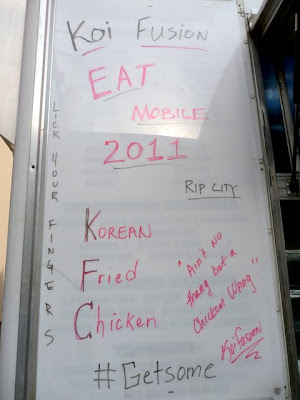 Koi Fusion
EAT
MOBILE
2011
RIP CITY
LICK YOUR FINGERS
KOREAN
Fried
Chicken
"Ain't NO
thang but a
Chicken Wang..."
KoiFusion
#Getsome